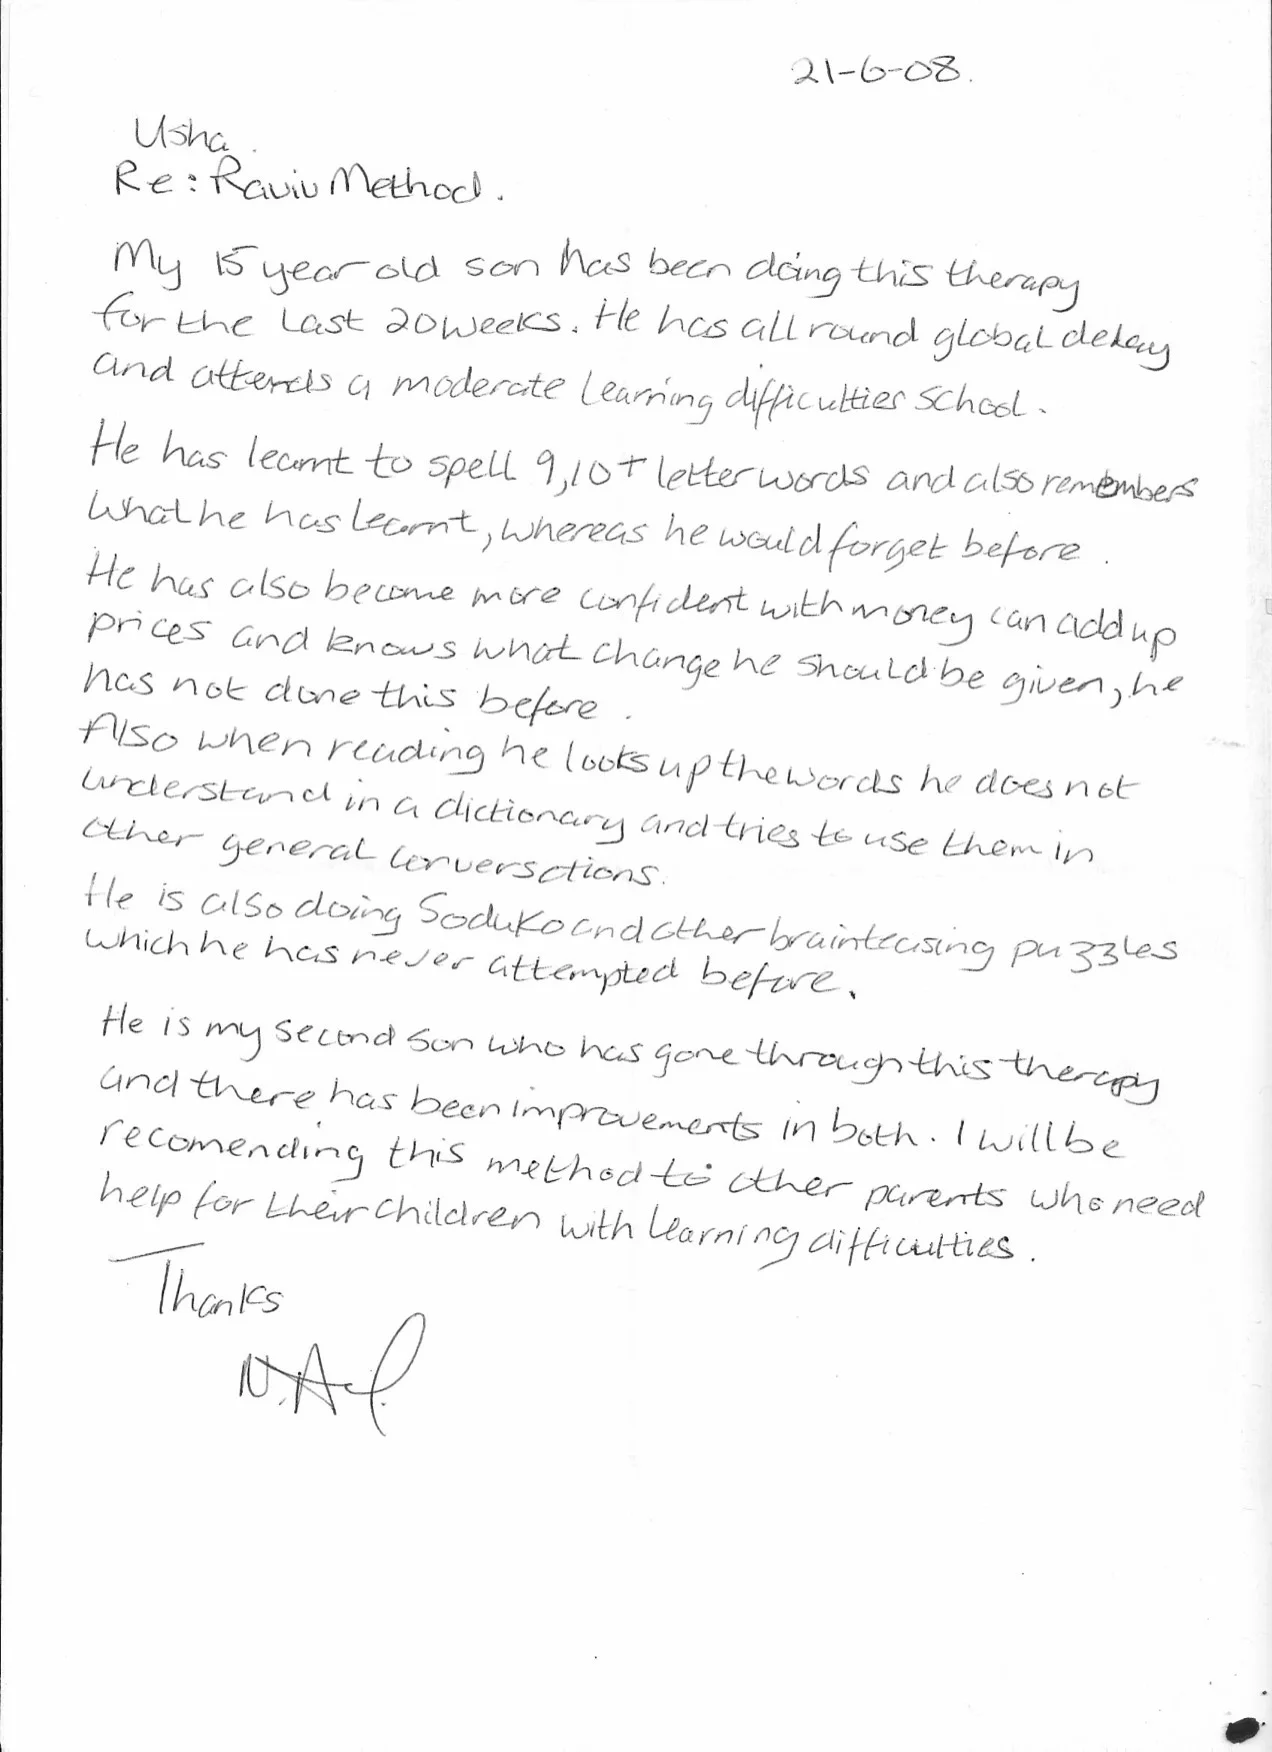 21-6-08.
Usha.
Re: Raviv Method.
My 15 year old son has been doing this therapy
for the last 20 weeks. He has all round global delay
and attends a moderate learning difficulties school.
He has learnt to spell 9,10+ letter words and also remembers
what he has learnt, whereas he would forget before.
He has also become more confident with money can add up
prices and knows what change he should be given, he
has not done this before.
Also when reading he looks up the words he does not
understand in a dictionary and tries to use them in
other general conversations.
He is also doing Soduko and other brainteasing puzzles
which he has never attempted before.
He is my second son who has gone through this therapy
and there has been improvements in both. I will be
recomending this method to other parents who need
help for their children with learning difficulties.
Thanks